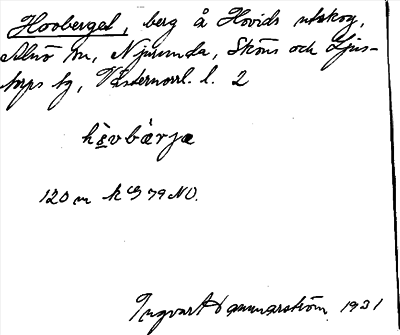 Hovberget, berg å Hovids utskog,
Alnö sn, Njurunda, Sköns och Ljus-
torps tg, Västernorrl. l. 2
hèvbærjæ
120 m k G 79 NO.
Ingvart Hammarström 1931